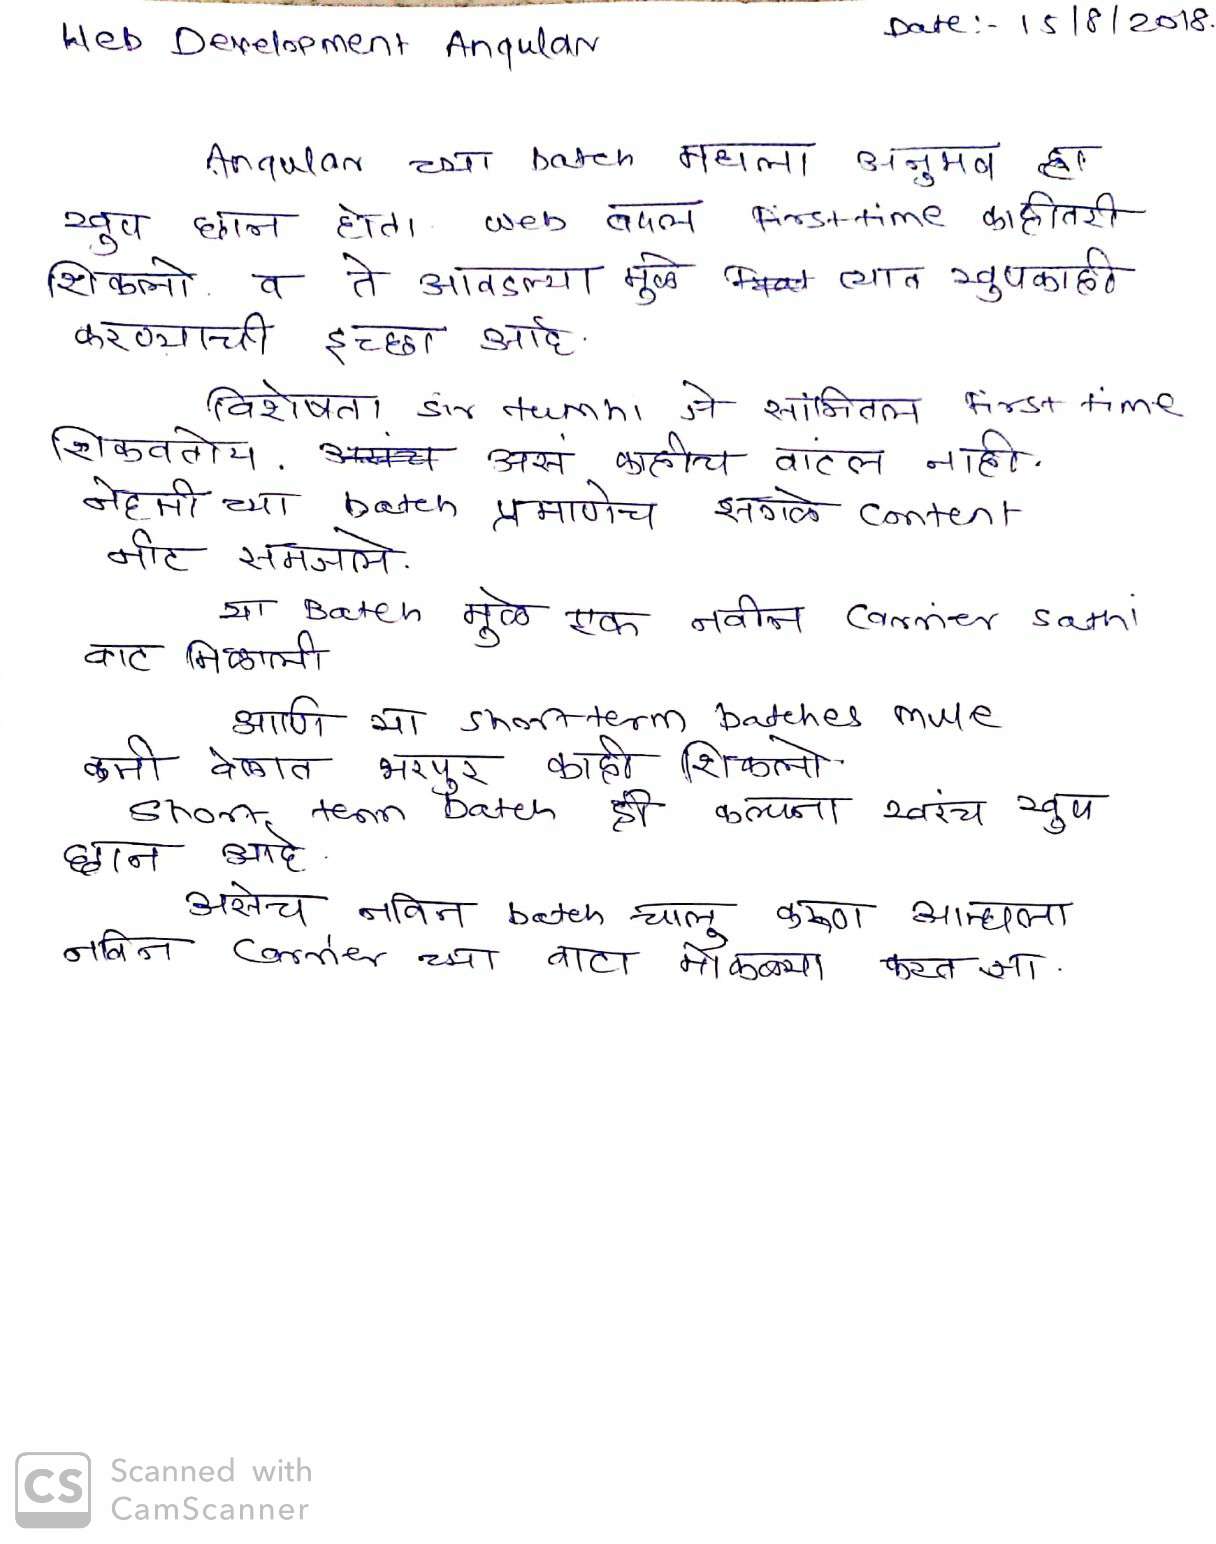 Web Development Angular
Date:- 15/8/2018.
Angular च्या batch मधला अनुभव हा
खुप छान होता. web बद्दल first time काहीतरी
शिकलो. व ते आवडल्या मुळे त्यात खुपकाही
करण्याची इच्छा आहे.
विशेषता sir tumhi जे सांगितल first time
शिकवतोय. असं काहीच वाटल नाही.
नेहमी च्या batch प्रमाणेच सगळे content
नीट समजले.
या Batch मुळे एक नवीन Carrier sathi
वाट मिळाली
आणि या short term batches mule
कमी वेळात भरपुर काही शिकलो.
short term batch ही कल्पना खरंच खुप
छान आहे.
असेच नविन batch चालु करून आम्हाला
नविन Carrier च्या वाटा मोकळ्या करत जा.
CS Scanned with
CamScanner